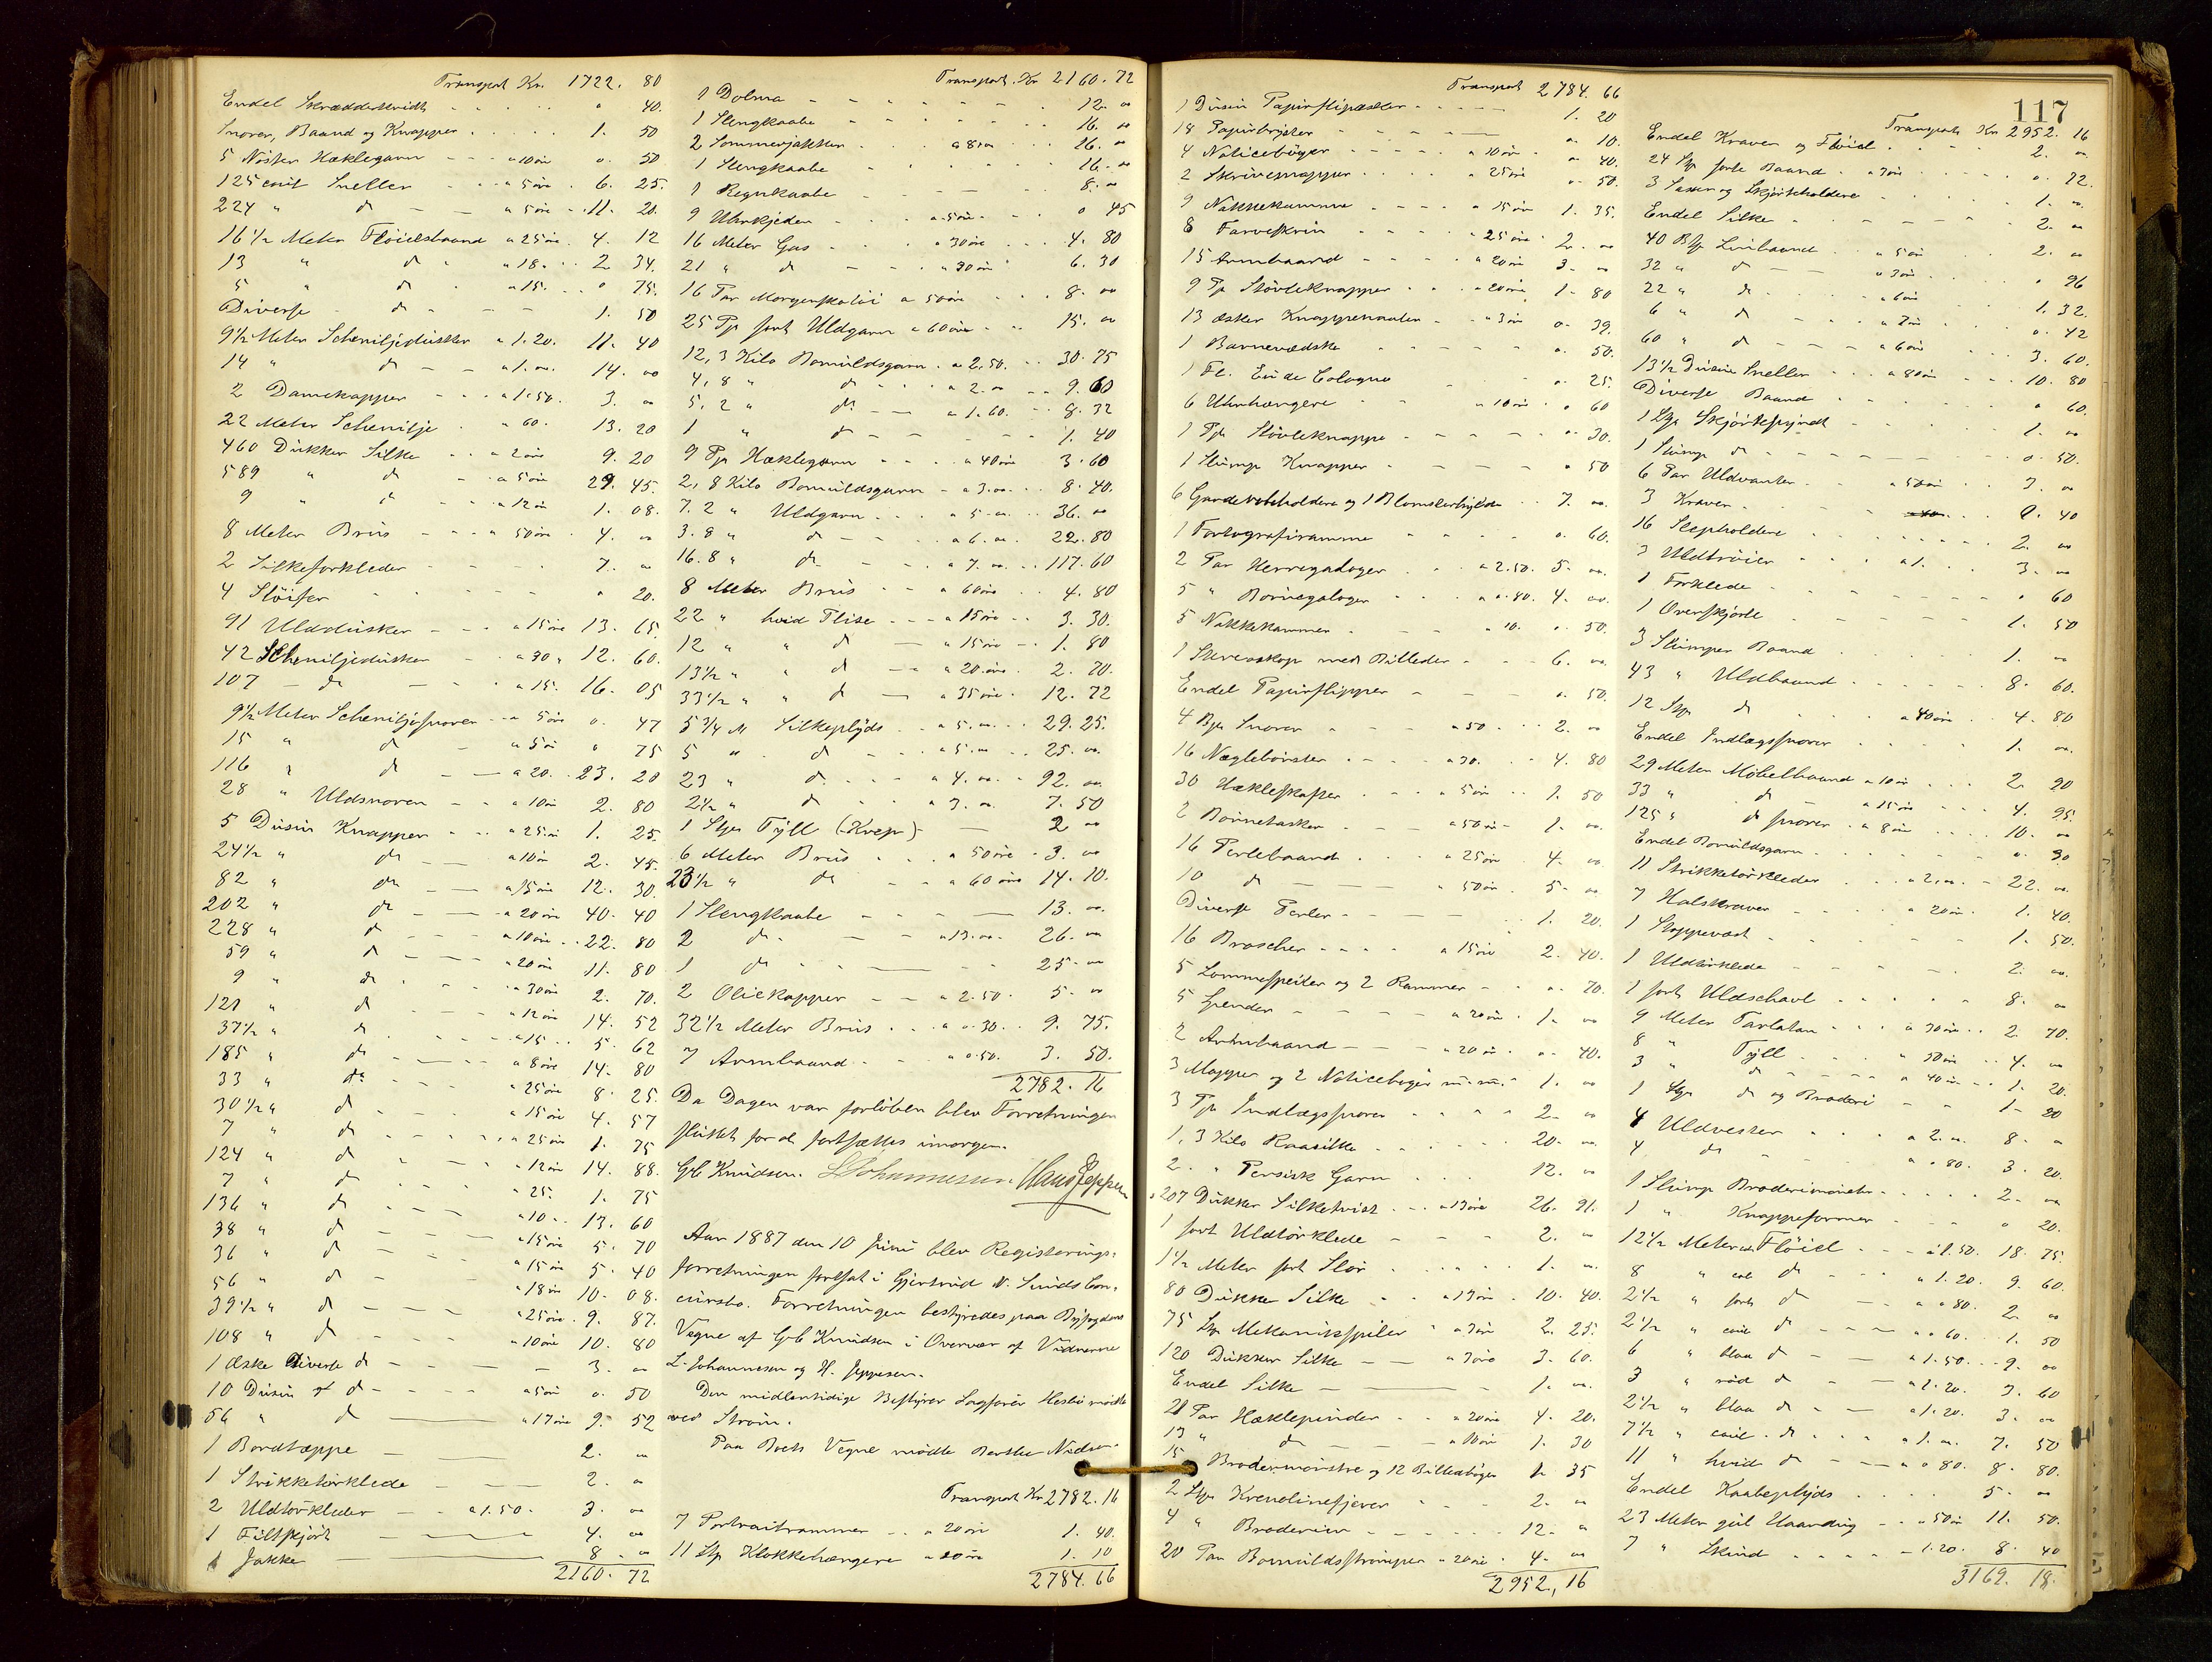 Transport Kr. 1722. 80
Endel Skrædderkridt - - - " 40.
Snorer, Baand og Knapper . . . . 1. 50
5 Nöster Hæklegarn - - - a 10 öre 0. 50
125 couil Sneller - - - a 5 öre . 6. 25.
224 " d - - a 5 öre - 11. 20.
16 1/2 Meter Flöielsbaand a 25 öre. 4. 12
13 " d - a 18. . 2. 34.
5 " d - a 15. . 0 75.
Diverse d - - 1. 50
9 1/2 Meter Scheniljedusker a 1.20. 11. 40
14 " d - - a 1. oo. 14. oo
2 Damekapper - - - a 1.50. 3. oo
22 Meter Schenilje . a 60. 13. 20
460 Dukker Silke . . a 2 öre 9. 20
589 " d - a 5 öre 29. 45.
9 " d - - a 12 öre 1. 08.
8 Meter Brus - - - a 50 öre . 4. oo
2 Silkeforkleder - - - 7. oo
4 Slöifer - - - - " 20.
91 Ulddusker - - - a 15 öre 13. 65.
42 Scheniljedusker - a 30 " 12. 60.
107 - d - - . a 15. 16. 05
9 1/2 Meter Scheniljesnorer - a 5 öre 0. 47
15 " d - a 5 öre 0 75
116 " d - - a 20. . 23. 20
28 " Uldsnorer - - a 10 öre 2. 80
5 Dusin Knapper - - - a 25 öre 1. 25.
24 1/2 " d - - a 10 öre 2. 45.
82 " d - - a 15 öre 12. 30.
202 " d - - - a 20 öre 40. 40
228 " d - - - a 10 öre . . 22. 80
59 " d - - - a 20 öre 11. 80
9 " d . - . a 30 öre 2. 70.
121 " d - - a 12 öre 14. 52
37 1/2 " d - - a 15 . . 5. 62
185 " d - - - a 8 öre 14. 80
33 " d - - - a 25 öre 8. 25.
30 1/2 " d - - a 15 öre 4. 57
7 " d - - - a 25 öre 1. 75
124 " d - - - a 12 öre 14. 88.
7 " d - - a 25. 1. 75
136 " d - - - a 10 . . 13. 60
38 " d - - - a 15 öre 5. 70
36 " d - - a 15 öre 5. 40
56 " d - - a 18 öre 10. 08.
39 1/2 " d - - - a 25 öre . 9. 87.
108 " d - - - a 10 öre 10. 80
1 Æske Diverse d - - - - 3. oo
10 Dusin d - - - a 5 öre 0. 50
56 " d - a 17 öre 9. 52
1 Bordtæppe - 2. oo
1 Strikketörklede - 2. oo
2 Uldtörkleder - - a 1.50. 3. oo
1 Filtskjört - 4. oo
1 Jakke - 8. oo
2160. 72
Transport. Kr 2160. 72
1 Dolma - - - - - 12. oo
1 Slengkaabe - - - - 16. oo
2 Sommerjakker . . . a 8. oo . . . 16. oo
1 Slengkaabe - - - 16. oo
1 Regnkaabe - - - 8. oo
9 Uhrkjeder - - . a 5 öre - - 0 45
16 Meter Gas - . . a 30 öre . . . 4. 80
21 " d - - . a 30 öre 6. 30
16 Par Morgenskotöi a 50 öre . . . 8. oo
25 Pp sort Uldgarn a 60 öre - - 15. oo
12,3 Kilo Bomuldsgarn . a 2.50. . . 30. 75
4,8 " d - - - a 2. oo - . 9. 60
5,2 " d - - a 1.60. . 8. 32
1 " d - - - - 1. 40
9 Pp Hæklegarn - - - a 40 öre 3. 60
2,8 Kilo Bomuldsgarn - a 3. oo. . . 8. 40.
7.2 " Uldgarn . . . a 5. oo. . . 36. oo
3.8 " d - - . a 6. oo. . 22. 80
16.8 " d - - . a 7. oo. . . 117. 60
8 Meter Brus - - a 60 öre . 4. 80
22 " hvid Flise - - - a 15 öre - - 3. 30.
12 " " d - - a 15 öre - - 1. 80
13 1/2 " " d - - a 20 öre . 2. 70.
33 1/2 " " d - a 35 öre . 12. 72
5 3/4 M Silkeplyds . . a 5. oo. . . 29. 25.
5 " . d . - . a 5. oo . 25. oo.
23 " d . . . a 4. oo. - 92. oo
2 1/2 " d - . . a 3. oo. 7. 50
1 Stk Tyll (Krep) - - 2 oo
6 Meter Brus - . . a 50 öre . 3. oo
23 1/2 " d - - a 60 öre 14. 10.
1 Slengkaabe - - - - 13. oo.
2 d. - - a 13. oo. 26. oo
1 d - - - - 25. oo
2 Oliekapper - - a 2.50. 5. oo
32 1/2 Meter Brus . . . a 0.30 . 9. 75.
7 Armbaand - - - a 0.50. 3. 50.
2782. 16
Da Dagen var forlöben blev Forretningen
sluttet for at fortsættes imorgen.
GB Knudsen. L Johannesen. Hans Jeppesen
Aar 1887 den 10 Juni blev Registerings-
forretningen fortsat i Gjertrud N. Sunds Con-
cursbo. Forretningen bestyredes paa Byfogdens
Vegne af GB Knudsen i Overvær af Vidnerne
L. Johannesen og H. Jeppesen.
Den midlertidige Bestyrer Sagförer Hesbö mödte
ved Ström.
Paa Boets Vegne mödte Berthe Nielsen.
Transport Kr. 2782. 16
7 Portraitrammer . . a 20 öre 1. 40.
11 Stk Klokkehængere a 10 öre 1. 10
2784. 66
117
Transport 2784. 66
1 Dusin Papirflipæsker . . . . 1. 20
18 Papirbryster - - - - - " 10.
4 Noticeböger - - - - a 10 öre . " 40.
2 Skrivemapper . . . . a 25 öre 0. 50.
9 Nakkekamme - - - a 15 öre 1. 35.
8 Farveskrin - - - a 25 öre . 2. oo
15 Armbaand - - - - a 20 öre 3. oo
9 Pp Stövleknapper . . a 20 öre 1. 80
13 æsker Knappenaaler - - a 3 öre 0. 39.
1 Barnevædske - - - - - 0. 50.
1 Fl. Eu de Cologne - - - 0. 25.
6 Uhrhængere - - a 10 öre . 0 60
1 Pp Stövleknappe - - - - " 30.
1 Slump Knapper - - - - 0 50
6 Garderobeholdere og 1 Blomsterhylde . . 7. oo.
1 Fortografiramme - - - - 0. 60.
2 Par Herregaloger - . . a 2.50. 5. oo.
5 " Börnegaloger - - . a 0.80. 4. oo.
5 Nakkekammer - - - a 10. 0. 50.
1 Stereoskop med Billeder - - - 6. oo.
Endel Papirflipper - - - 0. 50.
4 Bp Snorer - - - a 50 . . 2. oo
16 Neglebörster . - - . a 30. . . 4. 80
30 Hækleskafter . . . a 5 öre . . 1. 50
2 Börnetasker . - - a 50 öre - 1. oo.
16 Perlebaand . . . a 25 öre 4. oo
10 d - - - a 50 öre . 5. oo
Diverse Perler - - - - 1. 20.
16 Broscher - - - - a 15 öre 2. 40.
5 Lommespeiler og 2 Rammer - - 0. 70.
5 Spender - - - - a 20 öre . 1. oo
2 Armbaand - - - a 20 öre . 0. 40.
3 Mapper og 2 Noticebøger m.m. . 1. oo
3 Pp Indlægssnorer . . . . 2. oo
1,3 Kilo Raasilke - - - - 20. oo.
2. " Persisk Garn . . . 12. oo
207 Dukker Silketvist . . . a 13 öre 26. 91.
1 sort Uldtörklede - - - - 2. oo
1 1/2 Meter sort Slör . . . . 1. oo
80 Dukke Silke - . a 13 öre . 10. 40.
75 Stk Mekanikspiler . a 3 öre 2. 25.
120 Dukker Silke - - - a 3 öre 3. 60.
Endel Silke - - - 1. oo.
21 Par Hæklepinder . . . a 20 öre 4. 20.
13 " d - - a 10 öre 1. 30
15 Broderimönstre og 12 Billedböger 1. 35
2 Stk Krenolinefjærer - - - 2. oo
4 " Broderier - - - - 12. oo
20 Par Bomuldsströmper - a 20 öre . 4. oo
2952, 16
Transport Kr 2952. 16
Endel Kraver og Flöiel . . . . 2. oo
24 Stk sorte Baand . a 3 öre . . . 0. 72.
3 Saxer og Skjörteholdere . . . 1. oo.
Endel Silke - - - - - 2. oo
40 Bk Linbaand . . a 5 öre 2. oo
32 " d - - a 3 öre . . 0 96
22 " d - . . a 6 öre 1. 32.
6 " d - - a 7 öre . . 0. 42
60 " d - - a 6 öre . . . 3. 60.
13 1/2 Dusin Sneller . . . a 80 öre - - 10. 80
Diverse Baand . . . . 0 60.
1 Stk Skjörtepynt - - - 1. oo
1 Slump d - - - - 0. 50.
6 Par Uldvanter . . a 50 öre . . 3. oo
3 Kraver - - - - 0. 40
16 Slepholdere . . . . 2. oo
3 Uldtröier . . . a 1. . . 3. oo
1 Forklede - - - - 0 60
1 Overskjorte - - - - 1. 50
3 Slumper Baand . . . . 1. oo
43 " Uldbaand . . . . 8. 60.
12 Stk d . . . a 40 öre . . 4. 80
Endel Indlægssnorer . . . . 1. oo.
29 Meter Möbelbaand a 10 öre . . . 2. 90
33 " d - a 15 öre . . . 4. 95.
125 " d snorer . a 8 öre . . . 10. oo
Endel Bomuldsgarn . . . . 0. 30
11 Strikketörkleder . . . a 2. oo. - 22. oo.
7 Halskraver - - . a 20 öre . 1. 40.
1 Stoppevest - - - - - 1. 50.
1 Uldtörklede - - - - 2. oo.
1 sort Uldschavl . . . . 8. oo
9 Meter Tarlatan - - . a 30 öre . . 2. 70.
8 " Tyll . . . a 50 öre . . 4. oo
3 " d - - - a 40 öre . . 1. 20.
1 Stk d og Broderi - - - 1. 20
4 Uldvester . . . a 2. oo. 8. oo
4 d - - a 0.80. 3. 20.
1 Slump Broderimönster . . . . 2. oo
1 " Knappeformer - - - 0 20.
12 1/2 Meter Flöiel - - - a 1.50. 18. 75.
8 " coul d - - a 1.20. 9. 60.
2 1/2 " sort d - - a 0.80. 2. oo
2 1/2 " coul d - - - a 0.60. . 1. 50
6 " blaa d - - - a 1.50. . . 9. oo
3 " röd d - - a 1.20. 3. 60
2 1/2 " blaa d - - a 1.20. 3. oo
7 1/2 " coul. d . . . a 1. oo. 7. 50
11 " hvid d - - - a 0.80. 8. 80.
Endel Kaabeplyds . . . . 5. oo
23 Meter gul - - a 50 öre 11. 50.
7 " Skind . . . . - 1.20. 8. 40
3169. 18.